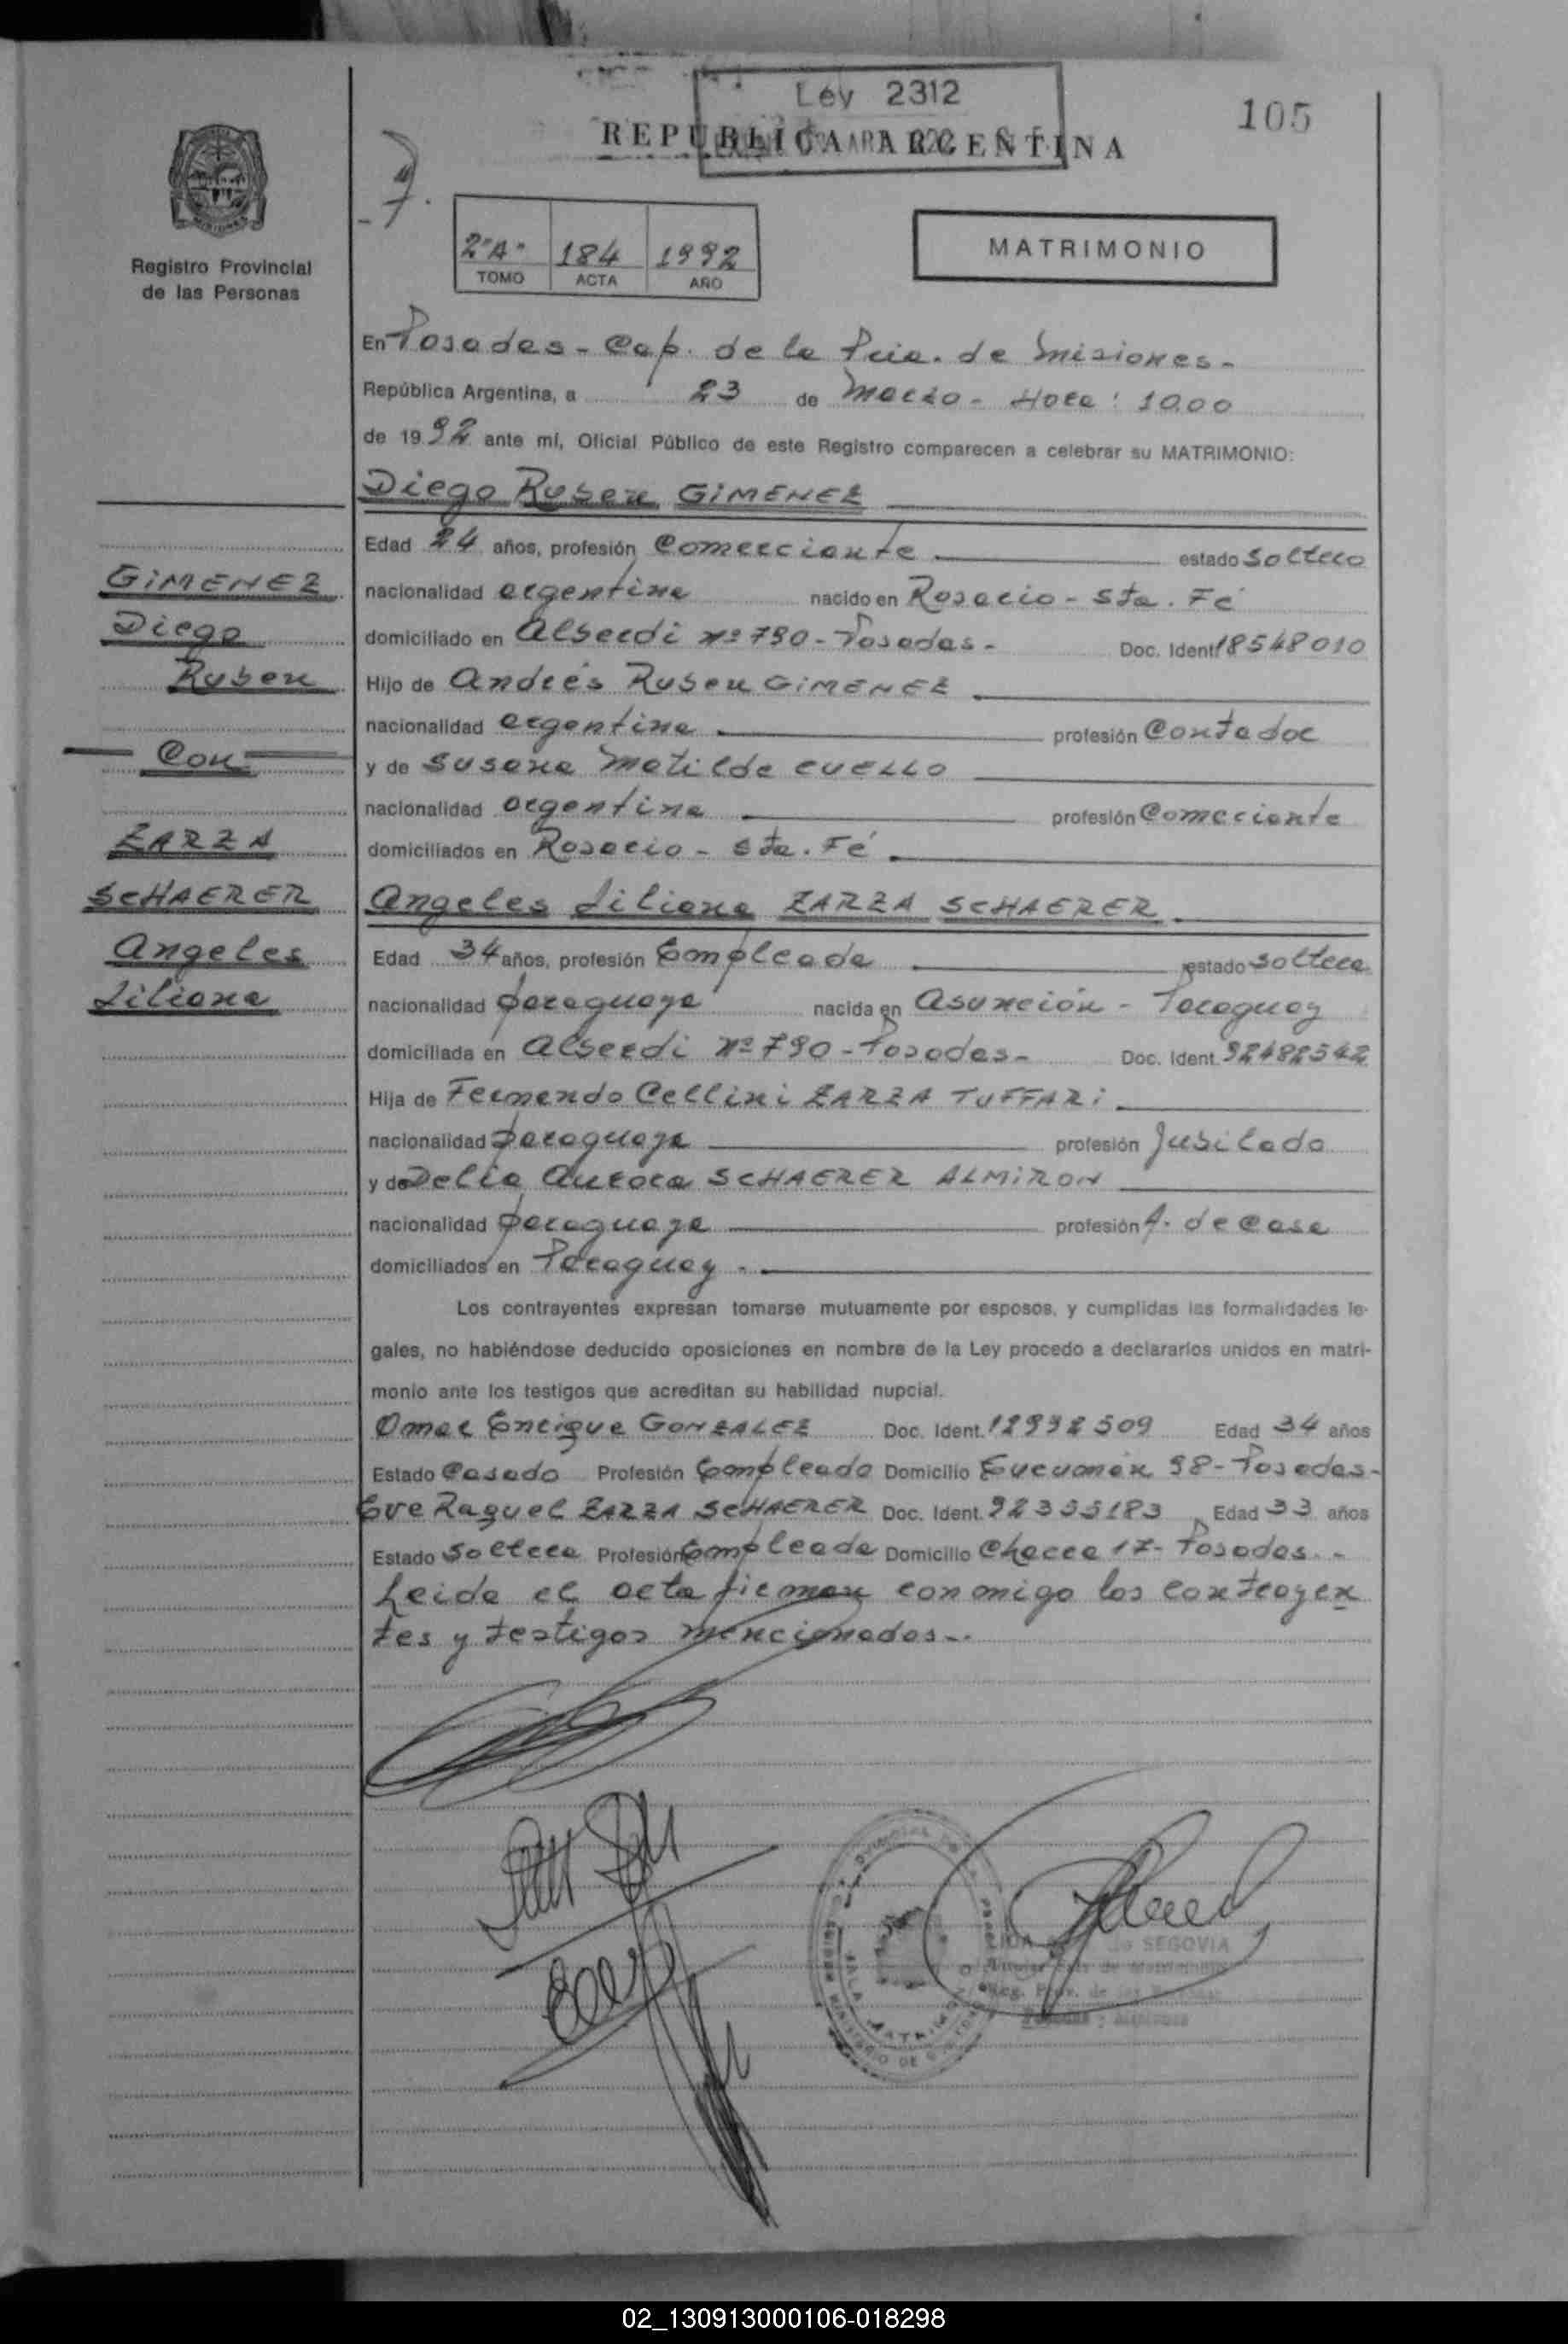 Ley 2312
105
REPUBLICA ARGENTINA
2"A" 184 1992
TOMO ACTA AÑO
MATRIMONIO
Registro Provincial
de las Personas
En Posadas - Cap. de la Pcia. de Misiones -
República Argentina, a 23 de Marzo - Hora: 10.00
de 1992 ante mí, Oficial Público de este Registro comparecen a celebrar su MATRIMONIO:
Diego Ruben GIMENEZ
Edad 24 años, profesión Comerciante estado Soltero
nacionalidad argentina nacido en Rosario - Sta. Fé
domiciliado en Alberdi Nº 790 - Posadas - Doc. Ident. 18548010
Hijo de Andrés Ruben GIMENEZ
nacionalidad argentina profesión Contador
y de Susana Matilde CUELLO
nacionalidad argentina profesión Comerciante
domiciliados en Rosario - Sta. Fé
GIMENEZ
Diego
Ruben
Con
ZARZA
SCHAERER
Angeles
Liliana
Angeles Liliana ZARZA SCHAERER
Edad 34 años, profesión Empleada estado Soltera
nacionalidad paraguaya nacida en Asunción - Paraguay
domiciliada en Alberdi Nº 790 - Posadas - Doc. Ident. 92482542
Hija de Fernando Cellini ZARZA TUFFARI
nacionalidad paraguaya profesión Jubilado
y de Delia Aurora SCHAERER ALMIRON
nacionalidad paraguaya profesión A. de Casa
domiciliados en Paraguay.
Los contrayentes expresan tomarse mutuamente por esposos, y cumplidas las formalidades le-
gales, no habiéndose deducido oposiciones en nombre de la Ley procedo a declararlos unidos en matri-
monio ante los testigos que acreditan su habilidad nupcial.
Omar Enrique GONZALEZ Doc. Ident. 12932509 Edad 34 años
Estado Casado Profesión Empleado Domicilio Tucumán 98 - Posadas -
Eve Raquel ZARZA SCHAERER Doc. Ident. 92355183 Edad 33 años
Estado Soltera Profesión Empleada Domicilio Chacra 17 - Posadas. -
Leida el acta firman conmigo los contrayen
tes y testigos mencionados. -
de SEGOVIA
02_130913000106-018298